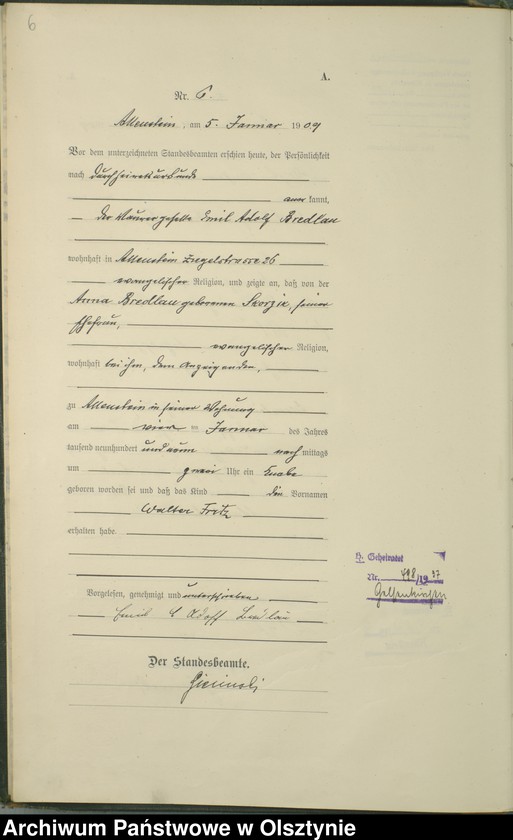 6
A.
Nr. 6.
Allenstein, am 5. Januar 1909
Vor dem unterzeichneten Standesbeamten erschien heute, der Persönlichkeit
nach durch Heiratsurkunde
aner kannt,
der Maurergeselle Emil Adolf Bredlau
wohnhaft in Allenstein Engelstrasse 26
evangelischer Religion, und zeigte an, daß von der
Anna Bredlau geborenen Skorzik, seiner
Ehefrau,
evangelischer Religion,
wohnhaft bei ihm, dem Anzeigenden,
zu Allenstein in seiner Wohnung
am vier ten Januar des Jahres
tausend neunhundert und neun nach mittags
um zwei Uhr ein Knabe
geboren worden sei und daß das Kind die Vornamen
Walter Fritz
erhalten habe.
Vorgelesen, genehmigt und unterschrieben
Emil Adolf Bredlau
Der Standesbeamte.
H. Geheiratet
Nr. 498/1937
Gelsenkirchen
Archiwum Państwowe w Olsztynie